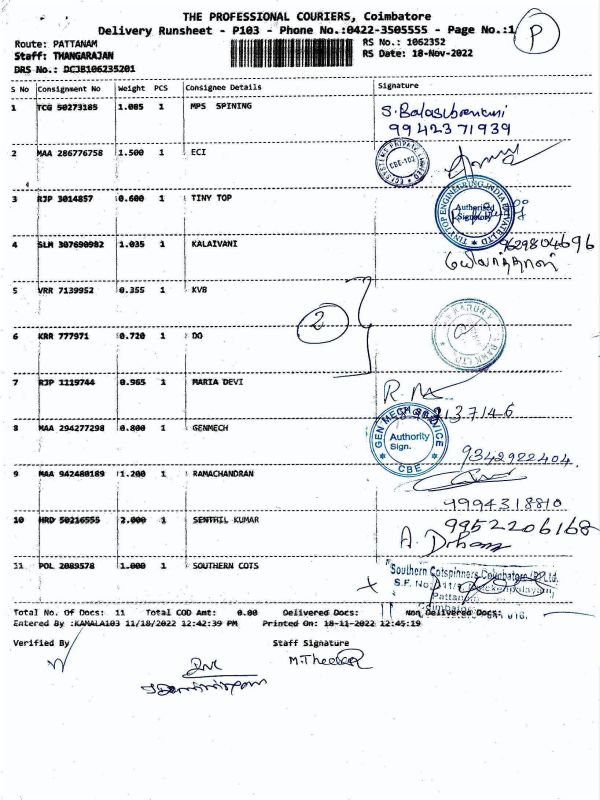 THE PROFESSIONAL COURIERS, Coimbatore
Delivery Runsheet - P103 - Phone No.:0422-3505555 - Page No.:1
P
Route: PATTANAM
RS No.: 1062352
Staff: THANGARAJAN
RS Date: 18-Nov-2022
DRS No.: DCJB106235201
S No Consignment No Weight PCS Consignee Details Signature
1 TCG 50273185 1.085 1 MPS SPINING
S.Balasubramani
9942371939
2 MAA 286776758 1.500 1 ECI
CBE-102
3 RJP 3014857 0.600 1 TINY TOP
TINYTOP ENGINEERING INDIA PRIVATE LTD
Authorised
Signatory
4 SLM 307690982 1.035 1 KALAIVANI
9629804696
5 VRR 7139952 0.355 1 KVB
2
6 KRR 777971 0.720 1 DO
7 RJP 1119744 0.965 1 MARIA DEVI
8 MAA 294277298 0.800 1 GENMECH
GEN MECH SERVICE
Authority
Sign.
CBE
9342922404
9 MAA 942480189 1.200 1 RAMACHANDRAN
9994318810
10 HRD 50216555 2.000 1 SENTHIL KUMAR
9952206168
11 POL 2089578 1.000 1 SOUTHERN COTS
Southern Cotspinners Coimbatore (P) Ltd.
S.F. No.
Pattanam
Total No. Of Docs: 11 Total COD Amt: 0.00 Delivered Docs: Non Delivered Docs:
Entered By :KAMALA103 11/18/2022 12:42:39 PM Printed On: 18-11-2022 12:45:19
Verified By Staff Signature